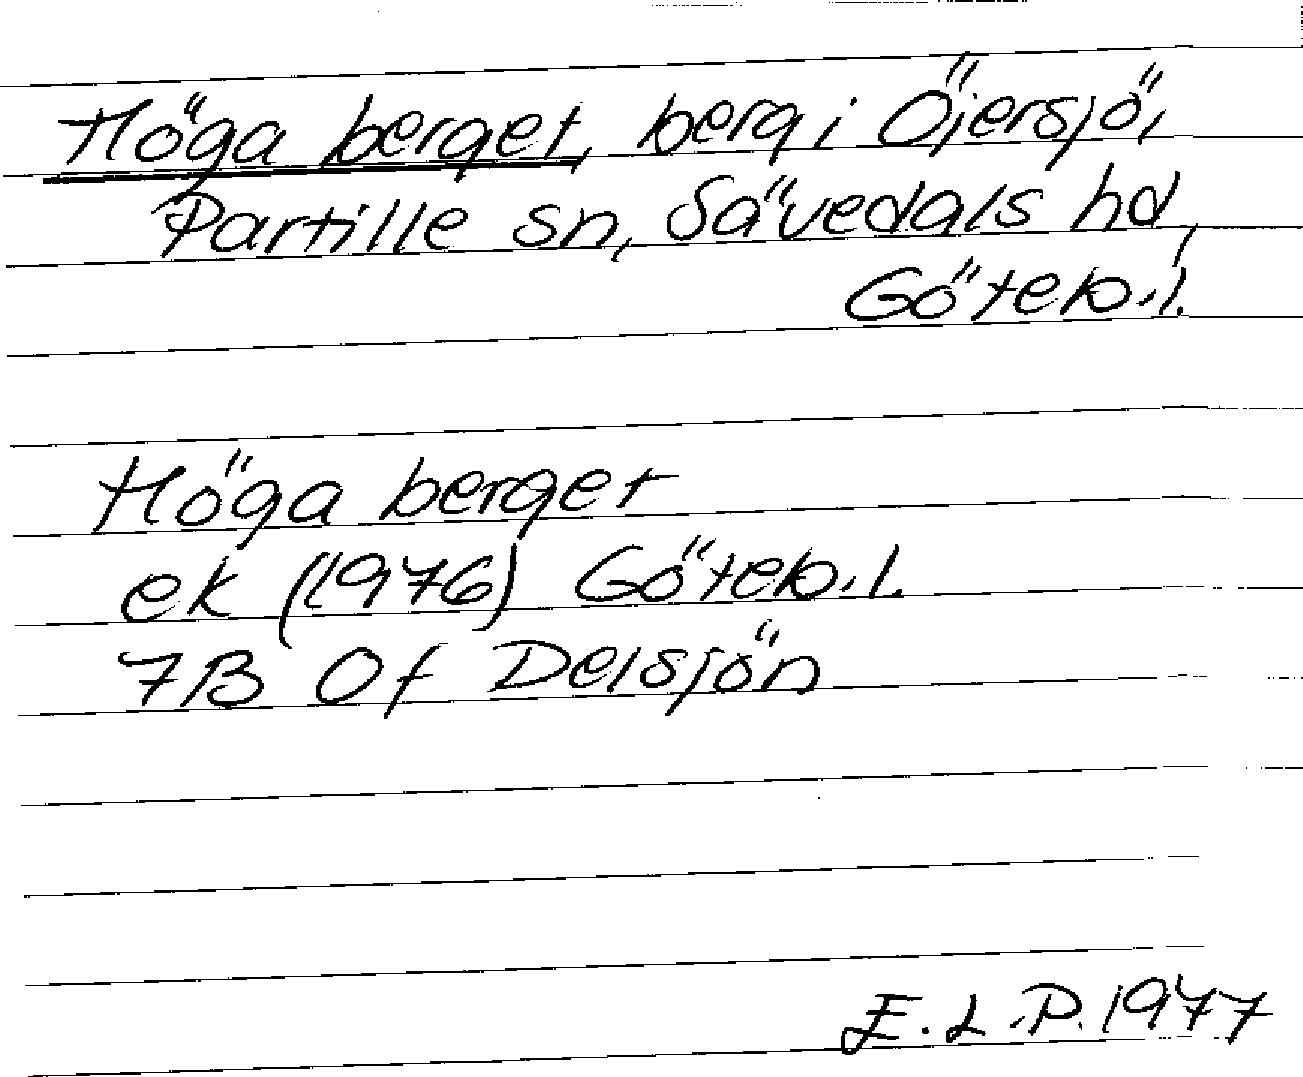 Höga berget, berg i Öjersjö,
Partille sn, Sävedals hd,
Göteb.l.
Höga berget
ek (1976) Göteb.l.
7B 0f Delsjön
E.L.P. 1977